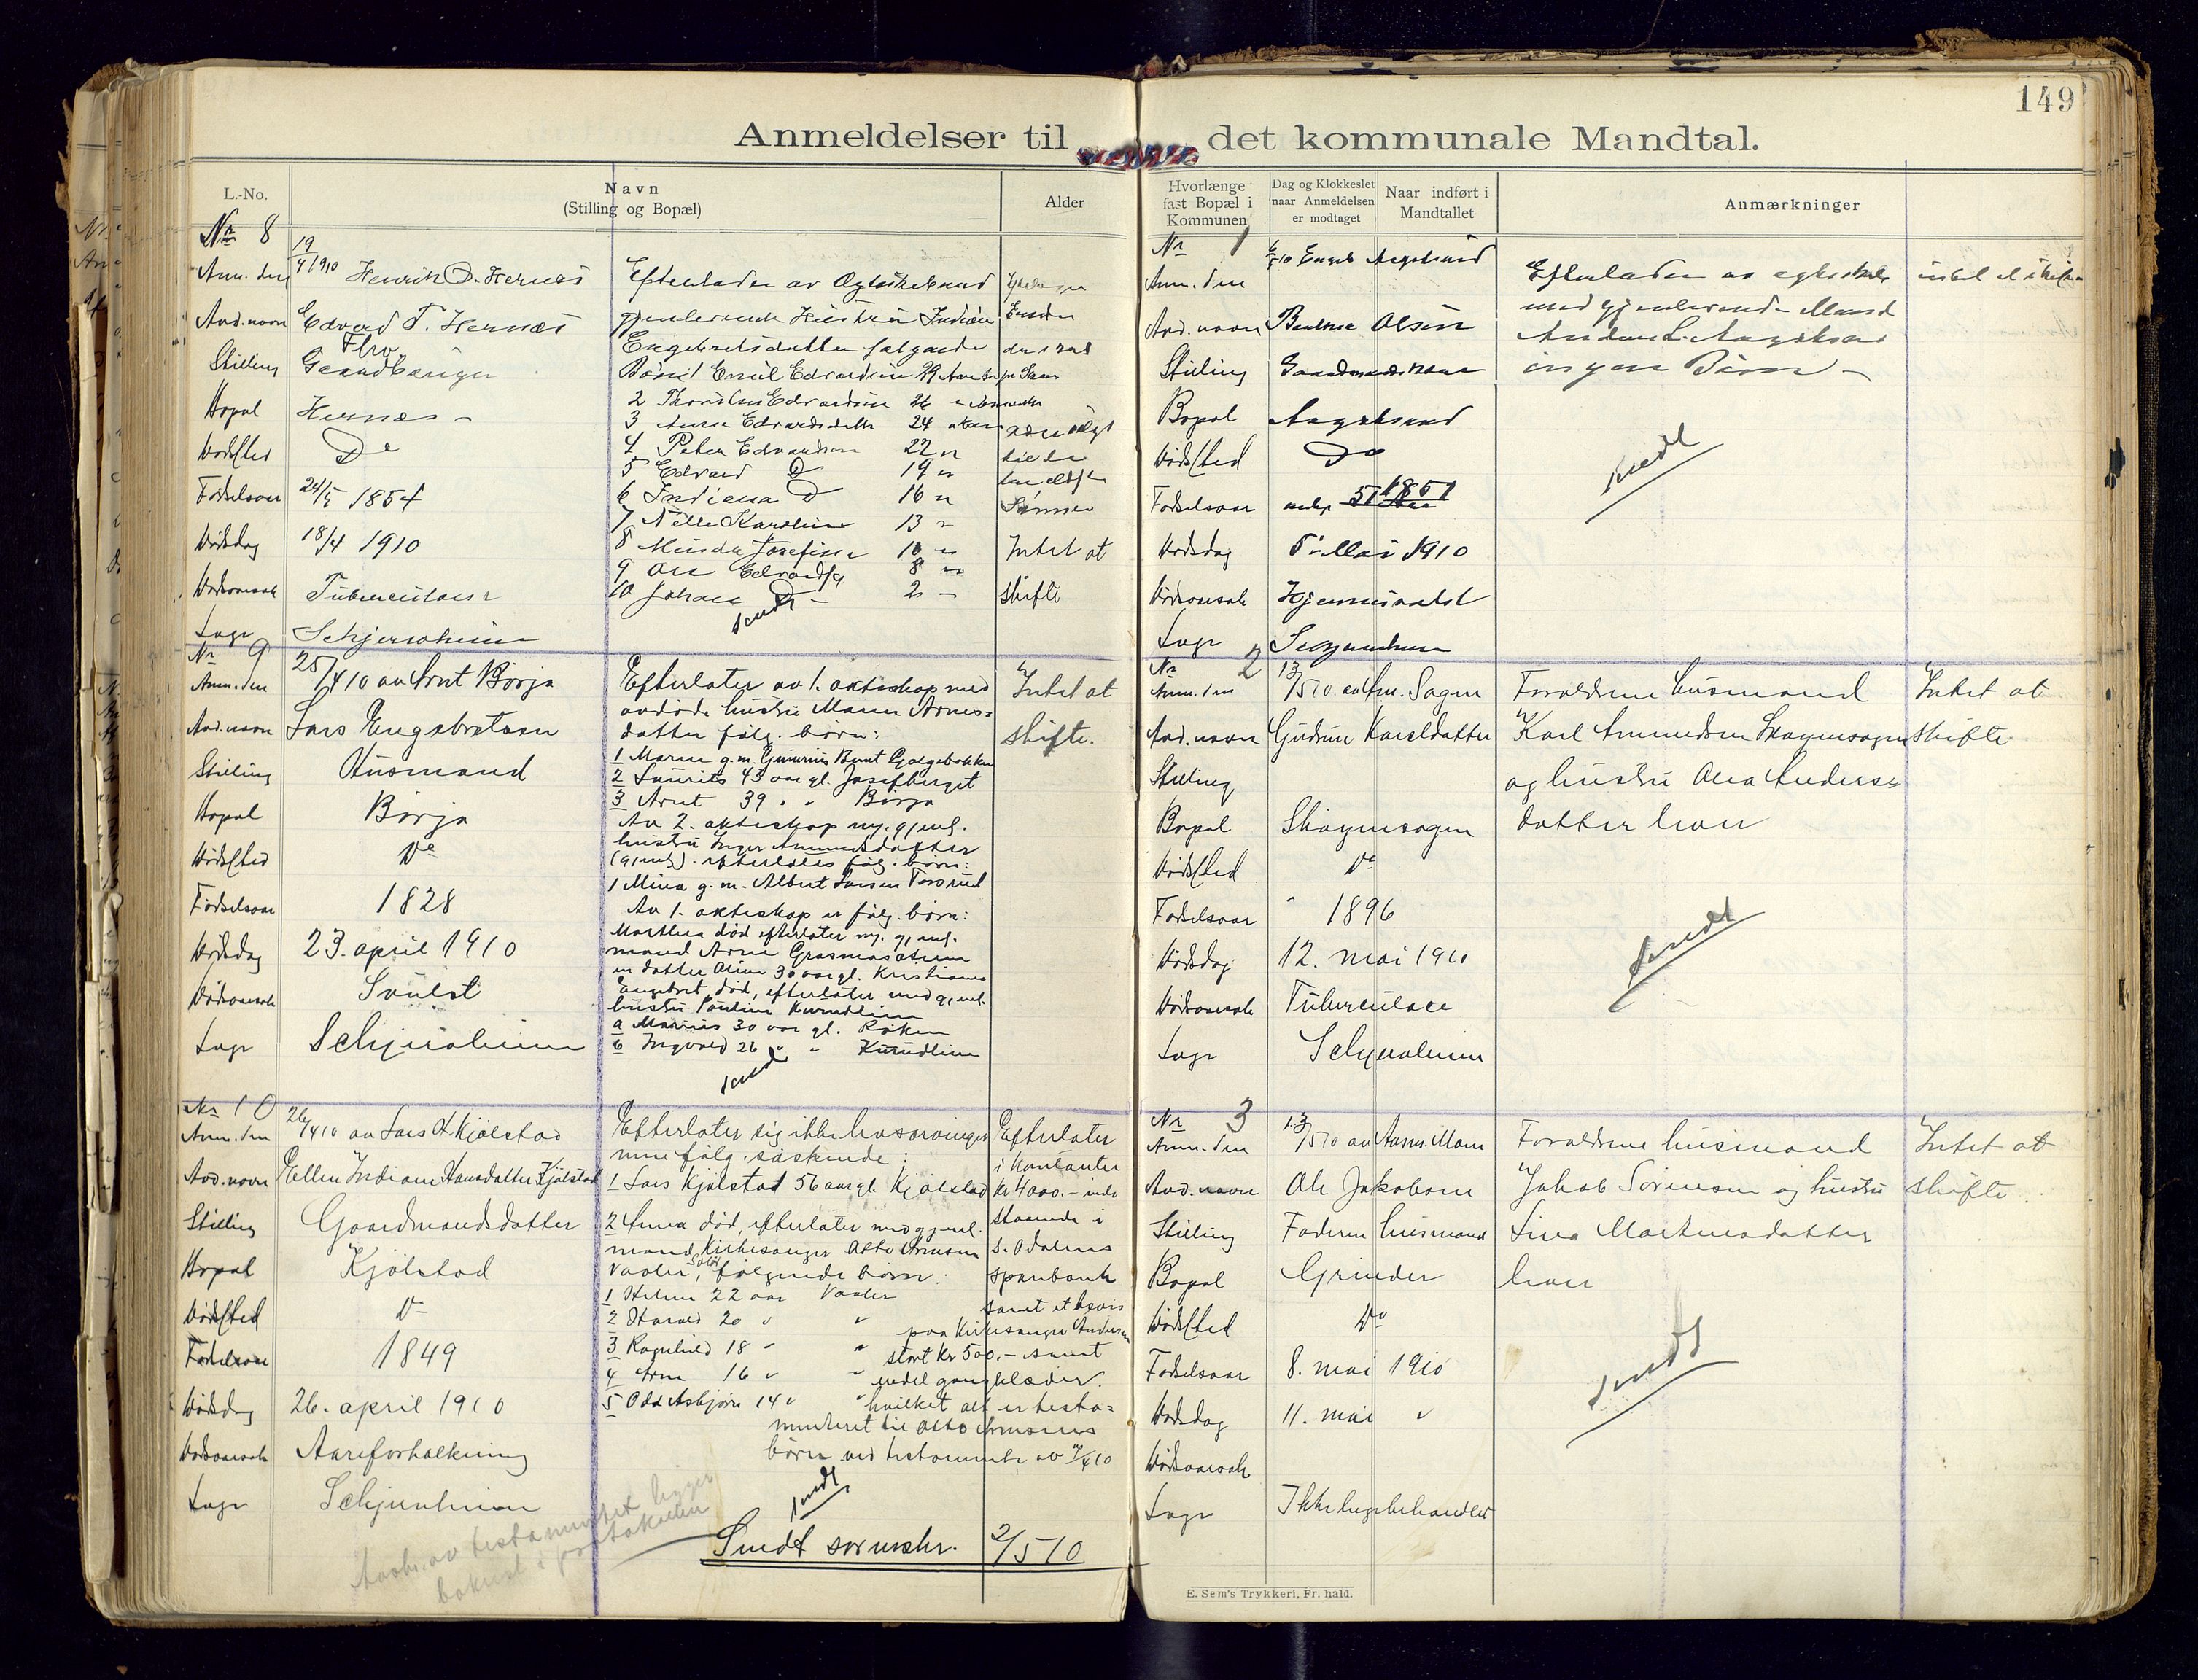 149
Anmeldelser til det kommunale Mandtal.
L.-No.
Navn
(Stilling og Bopæl)
Alder
Hvorlænge fast Bopæl i Kommunen
Dag og Klokkeslet naar Anmeldelsen er modtaget
Naar indført i Mandtallet
Anmærkninger
Nr 8
Anm. den 19/4 1910 Henrik O. Hernæs
Avd. navn Edvard T. Hernæs
Stilling
Bopæl Hernæs
Dødssted Do
Fødselsaar 24/5 1854
Dødsdag 18/4 1910
Dødsaarsak Tuberculose
Læge Schjernheim
Efterlader av Egteskab med
gjenlevende Hustru Indiana
Engebretsdatter følgende
Børn 1 Emil Edvardsen 29 Aar
2 Thorstens Edvardsen 26
3 Anna Edvardsdatter 24
4 Peter Edvardsen 22 "
5 Edvard Do 19 "
6 Indiana Do 16 "
7 Nelle Karoline 13 "
8 Minda Josefine 10 "
9 Ole Edvards 8 "
10 Johan Do 2 -
sendt
Sønner
Intet at
skifte
Nr 9
Anm. den 25/4 10 av Arnt Børja
Avd. navn Lars Engebretsen
Stilling Husmand
Bopæl Børja
Dødssted Do
Fødselsaar 1828
Dødsdag 23. april 1910
Dødsaarsak Svulst
Læge Schjernheim
Efterlater av 1. ækteskap med
avdøde hustru Maren Arnes=
datter følg. børn:
1 Maren g.m. Gunerius Bernt Galgebakken
2 Laurits 43 aar gl. Josefberget
3 Arnt 39 " " Børja
Av 2. ækteskap m. gjenl.
hustru Inger Amundsdatter
(gjenl.) efterlates følg. børn:
1 Mina g.m. Albert Larsen Torsrud
Av 1. ækteskap er følg. børn:
Marthea død efterlater m. gjenl.
mand Arne Grasmosætrem
en datter Oline 30 aar gl. Kristiania
Engebret, død, efterlater med gjenl.
hustru Pauline Kurudlien
a Marius 30 aar gl. Røken
b Ingvald 26 " " Kurudlien
sendt
Intet at
skifte.
Nr 10
Anm. den 26/4 10 av Lars H. Kjølstad
Avd. navn Ellen Indiane Hansdatter Kjølstad
Stilling Gaardmandsdatter
Bopæl Kjølstad
Dødssted Do
Fødselsaar 1849
Dødsdag 26. april 1910
Dødsaarsak Aareforkalkning
Læge Schjernheim
Efterlater sig ikke livsarvinger
men følg. søskende:
1 Lars Kjølstad 56 aar gl. Kjølstad
2 Anna død, efterlater med gjenl.
mand, Kirkesanger Otto Armson
Vaaler, Solør følgende børn:
1 Helene 22 aar Vaaler
2 Harald 20 " "
3 Ragnhild 18 " "
4 Arne 16 " "
5 Odd Asbjørn 14 " "
Efterlater
i kontanter
kr 4000.- inde
staaende i
S. Odalens
sparebank
samt et bevis
paa Kirkesanger Andersen
stort kr 500.- samt
endel gangklæder.
hvilket alt er testa=
menteret til Otto Armsons
børn ved testamente av
sendt
Sendt sorenskr. 2/5 10
Avskr. av testamentet ligger
bakerst i protokollen
Nr 1
Anm. den
Avd. navn Olsen
Stilling
Bopæl
Dødssted Do
Fødselsaar 1851
Dødsdag Mai 1910
Dødsaarsak
Læge
Efterlader av egteskab
med gjenlevende Mand
ingen Børn -
intet at skifte
sendt
Nr 2
Anm. den 13/5 10 av Am. Sagen
Avd. navn Gudrun Karlsdatter
Stilling
Bopæl Skogensagen
Dødssted Do
Fødselsaar 1896
Dødsdag 12. mai 1910
Dødsaarsak Tuberculose
Læge Schjernheim
Forældrene husmand
Karl Amundsen Skogensagen
og hustru Olea Anders=
datter lever
Intet at
skifte
sendt
Nr 3
Anm. den 13/5 10 av Aasm. Moen
Avd. navn Ole Jakobsen
Stilling Faderen husmand
Bopæl Grinder
Dødssted Do
Fødselsaar 8. mai 1910
Dødsdag 11. mai "
Dødsaarsak
Læge Ikke lægebehandlet
Forældrene husmand
Jakob Sørensen og hustru
Lina Martinusdatter
lever
Intet at
skifte.
sendt
E. Sem's Trykkeri, Fr. hald.